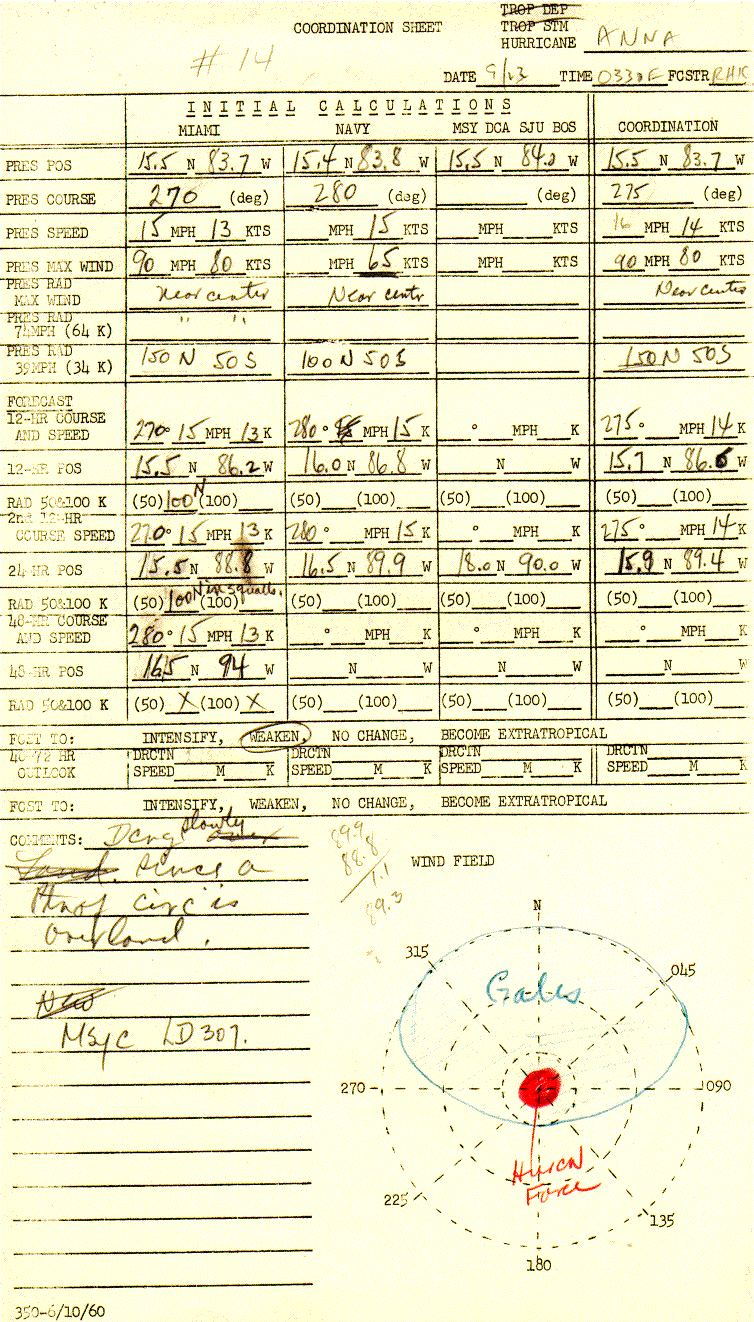 TROP DEP
COORDINATION SHEET TROP STM
HURRICANE ANNA
# 14
DATE 9/23 TIME 0330E FCSTR RHK
INITIAL CALCULATIONS
MIAMI NAVY MSY DCA SJU BOS COORDINATION
PRES POS 15.5 N 83.7 W 15.4 N 83.8 W 15.5 N 84.0 W 15.5 N 83.7 W
PRES COURSE 270 (deg) 280 (deg) (deg) 275 (deg)
PRES SPEED 15 MPH 13 KTS MPH 15 KTS MPH KTS 16 MPH 14 KTS
PRES MAX WIND 90 MPH 80 KTS MPH 65 KTS MPH KTS 90 MPH 80 KTS
PRES RAD
MAX WIND Near center Near centr Near center
PRES RAD
74MPH (64 K) " "
PRES RAD
39MPH (34 K) 150 N 50 S 100 N 50 S 150 N 50 S
FORECAST
12-HR COURSE
AND SPEED 270° 15 MPH 13 K 280° MPH 15 K ° MPH K 275° MPH 14 K
12-HR POS 15.5 N 86.2 W 16.0 N 86.8 W N W 15.7 N 86.5 W
RAD 50&100 K (50) 100 N (100) (50) (100) (50) (100) (50) (100)
2nd 12-HR
COURSE SPEED 270° 15 MPH 13 K 280° MPH 15 K ° MPH K 275° MPH 14 K
24-HR POS 15.5 N 88.8 W 16.5 N 89.9 W 18.0 N 90.0 W 15.9 N 89.4 W
RAD 50&100 K (50) 100 N in squalls. (100) (50) (100) (50) (100) (50) (100)
48-HR COURSE
AND SPEED 280° 15 MPH 13 K ° MPH K ° MPH K ° MPH K
48-HR POS 16.5 N 94 W N W N W N W
RAD 50&100 K (50) X (100) X (50) (100) (50) (100) (50) (100)
FCST TO: INTENSIFY, WEAKEN, NO CHANGE, BECOME EXTRATROPICAL
48-72 HR DRCTN DRCTN DRCTN DRCTN
OUTLOOK SPEED M K SPEED M K SPEED M K SPEED M K
FCST TO: INTENSIFY, WEAKEN, NO CHANGE, BECOME EXTRATROPICAL
COMMENTS: slowly
Land. Since a
of circ is
overland.
New
LD 307.
899
88.8
1.1
89.3
WIND FIELD
N
315
045
Gales
270
090
Hurcn
Force
225
135
180
350-6/10/60